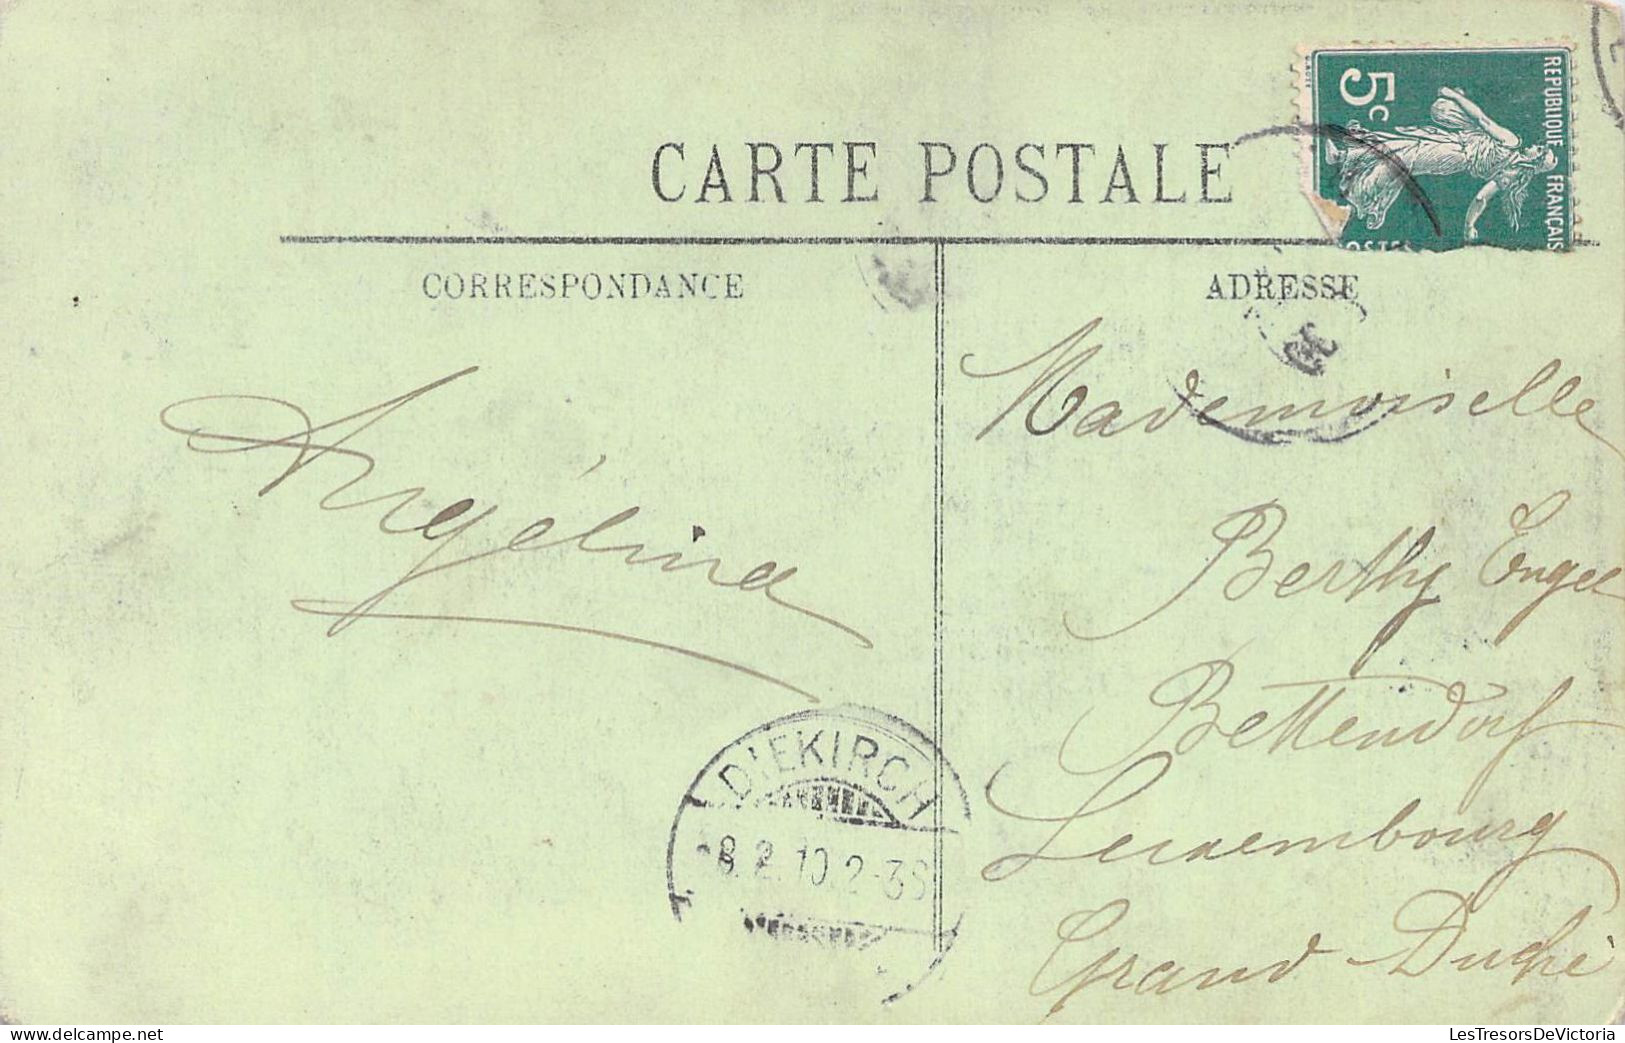 CARTE POSTALE
REPUBLIQUE FRANÇAIS
5c
CORRESPONDANCE
ADRESSE
Angélina
Mademoiselle
Berthy Engel
Bettendorf
Luxembourg
Grand Duché
DIEKIRCH
8.2.10.2-3S
delcampe.net
LesTresorsDeVictoria